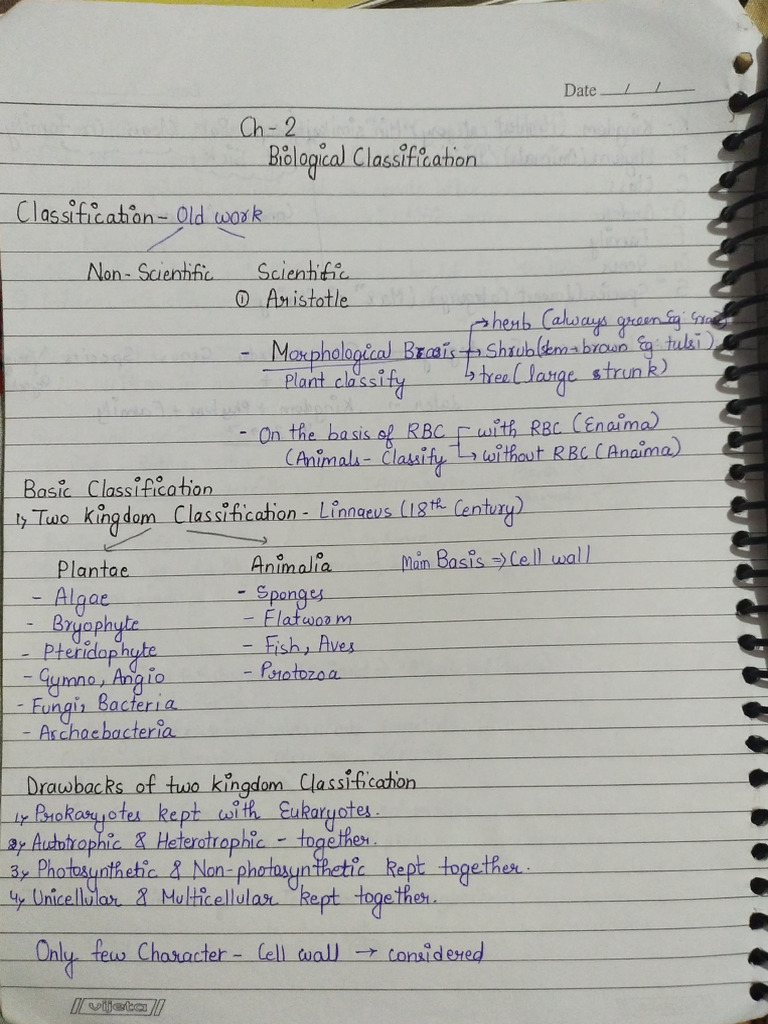 Date / /
Ch-2
Biological Classification
Classification - Old work
Non-Scientific Scientific
① Aristotle
→ herb (always green Eg:
- Morphological Basis → Shrub (stem→brown Eg: tulsi)
Plant classify ↳ tree (large strunk)
- On the basis of RBC with RBC (Enaima)
(Animals - Classify → without RBC (Anaima)
Basic Classification
1) Two Kingdom Classification - Linnaeus (18th Century)
Plantae Animalia Main Basis ⇒ Cell wall
- Algae - Sponges
- Bryophyte - Flatworm
- Pteridophyte - Fish, Aves
- Gymno, Angio - Protozoa
- Fungi, Bacteria
- Archaebacteria
Drawbacks of two kingdom Classification
1) Prokaryotes kept with Eukaryotes.
2) Autotrophic & Heterotrophic - together.
3) Photosynthetic & Non-photosynthetic kept together.
4) Unicellular & Multicellular kept together.
Only few Character - Cell wall → considered
vijeta